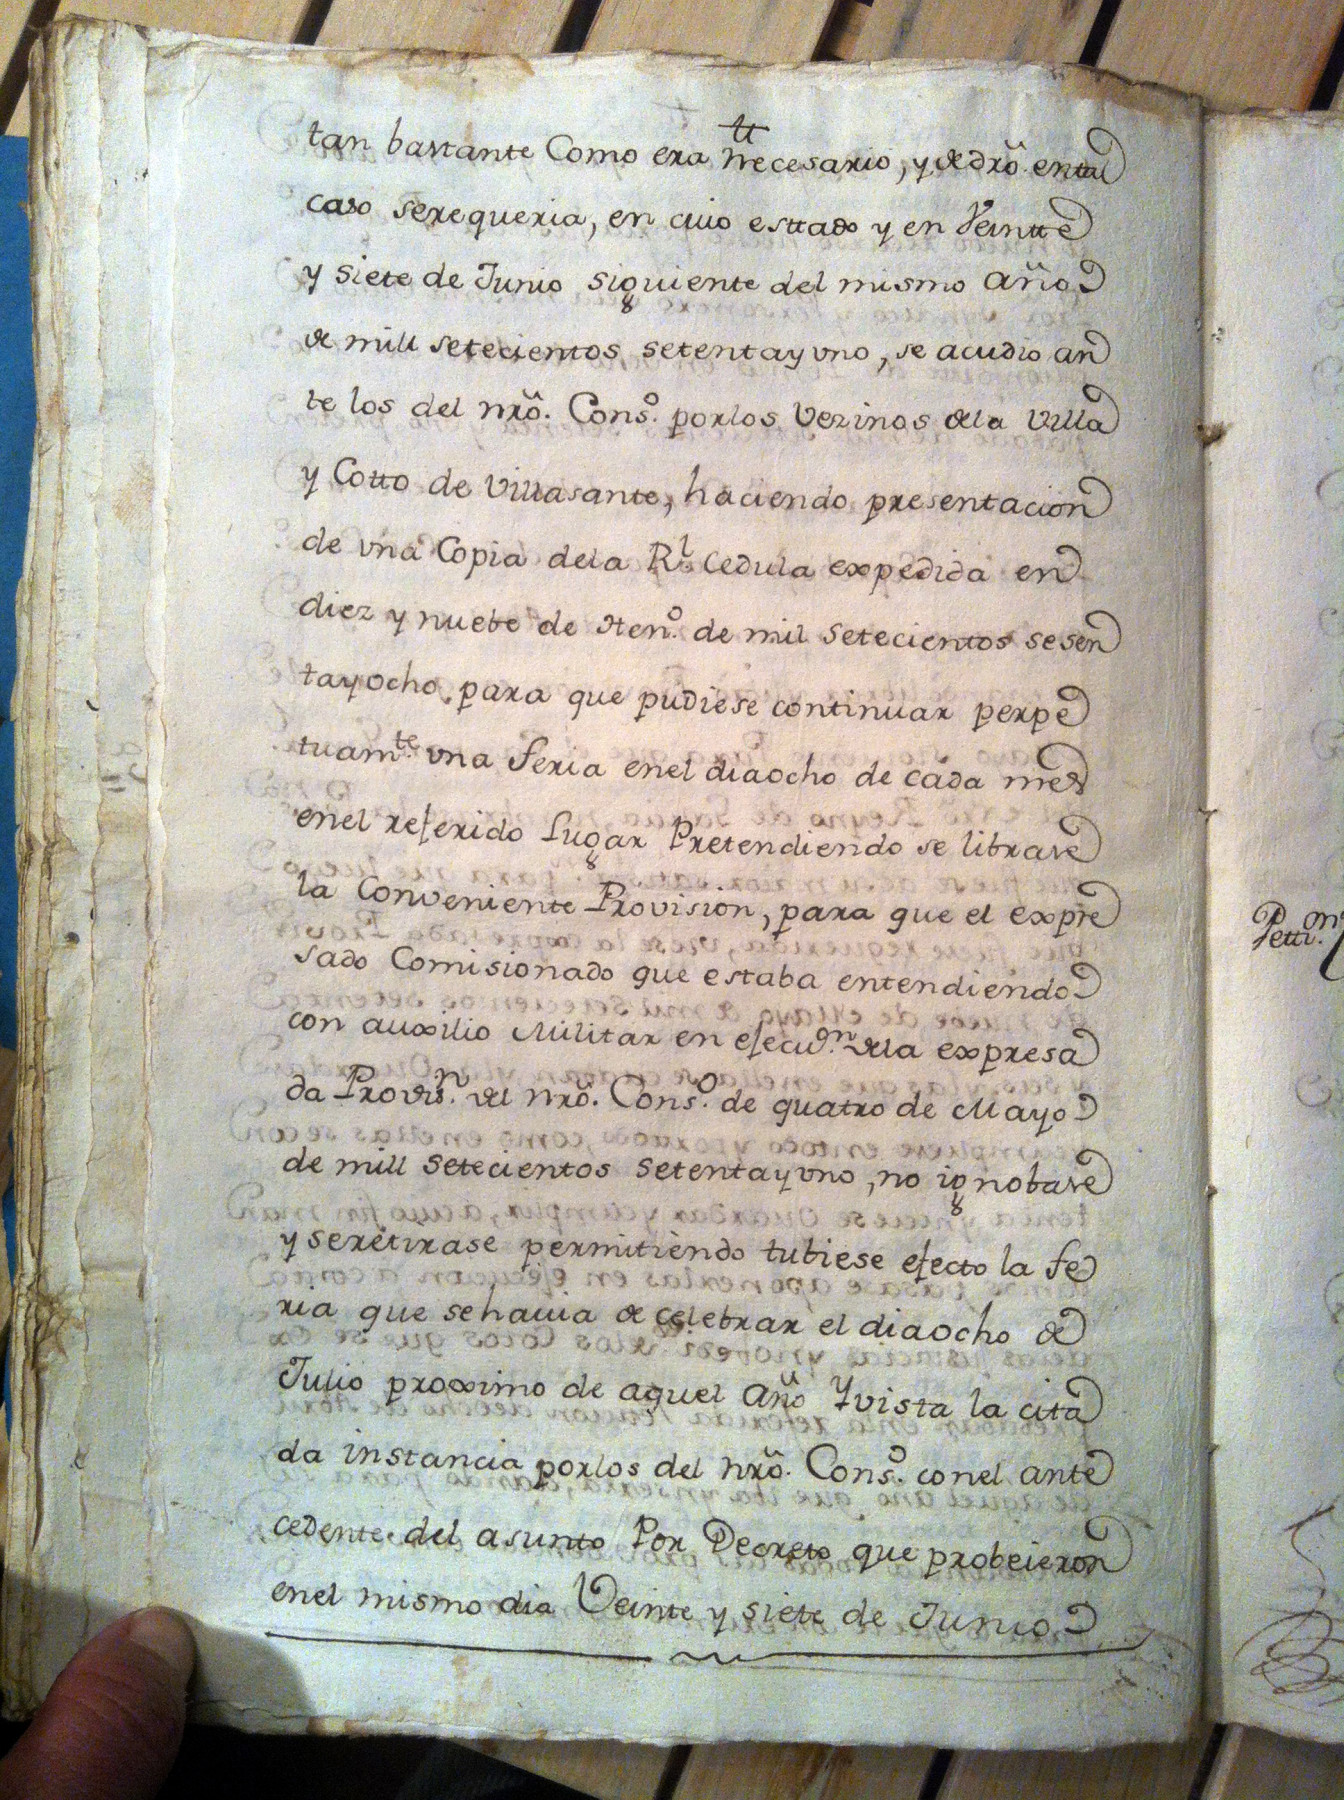 tt
tan bastante Como era necesario, y de dr̃o. en tal
caso se requeria, en cuio esttado y en Veintte
y siete de Junio siguiente del mismo año
de mill setecientos setenta y uno, se acudio an
te los del nr̃o. Cons.º por los Vezinos de la Villa
y Cotto de Villasante, haciendo presentacion
de una Copia de la R.l Cedula expedida en
diez y nuebe de Hen.º de mil setecientos sesen
ta y ocho para que pudiese continuar perpe
tuam.te una feria en el dia ocho de cada mes
en el referido Lugar Pretendiendo se librase
la Conveniente Provision, para que el expre
sado Comisionado que estaba entendiendo
con auxilio Militar en ejecu.on de la expresa
da Provis.n del nr̃o. Cons.º de quatro de Mayo
de mill setecientos setenta y uno, no ignobase
y se retirase permitiendo tubiese efecto la fe
ria que se hauia de celebrar el dia ocho de
Julio proximo de aquel año Y vista la cita
da instancia por los del nr̃o. Cons.º con el ante
cedente del asunto Por Decreto que probeieron
en el mismo dia Veinte y siete de Junio
Petti.on